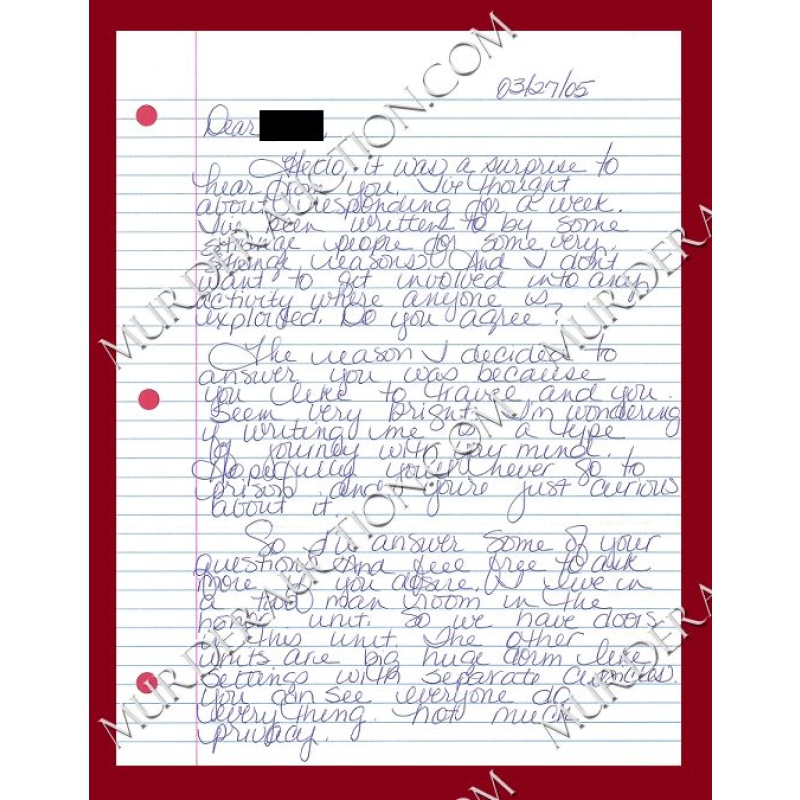 03/27/05
Dear
Hello, it was a surprise to
hear from you. I've thought
about responding for a week.
I've been written to by some
strange people for some very
strange reasons. And I don't
want to get involved into any
activity where anyone is
exploited. Do you agree?
The reason I decided to
answer you was because
you like to travel and you
seem very bright. I'm wondering
if writing me is a type
of journey with your mind.
Hopefully you'll never go to
prison and you're just curious
about it.
So I'll answer some of your
questions. And feel free to ask
more if you desire. I live in
a two man room in the
honor unit. So we have doors
in this unit. The other
units are big huge dorm like
settings with separate cubicles.
You can see everyone do
everything. not much
privacy.
MURDERAUCTION.COM
MURDERAUCTION.COM
MURDERA
MURDERA